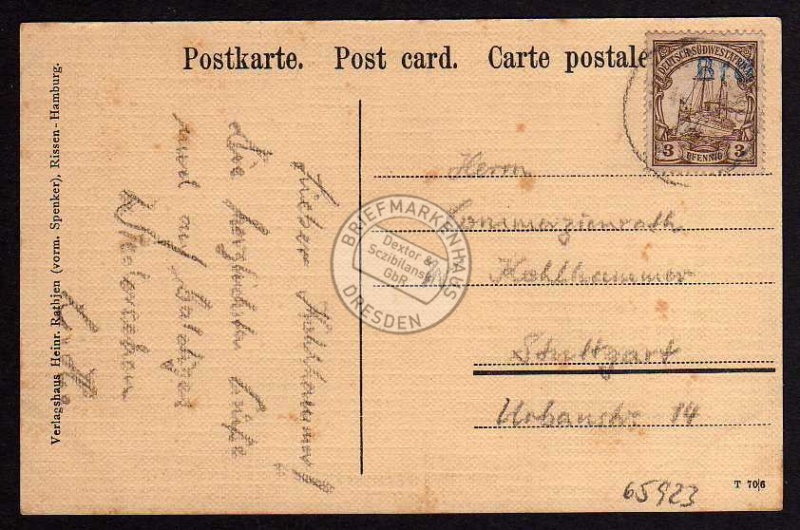 Postkarte. Post card. Carte postale
DEUTSCH-SÜDWESTAFRIKA
3 PFENNIG 3
Verlagshaus Heinr. Rathjen (vorm. Spenker), Rissen-Hamburg.
Lieber Kohlhammer!
Die herzlichsten Grüße
und auf baldiges
Wiedersehen
Herrn
Kommerzienrath
Kohlhammer
Stuttgart
Urbanstr. 14
65923
T 706
BRIEFMARKENHAUS
Dextor &
Sczibilanski
GbR
DRESDEN